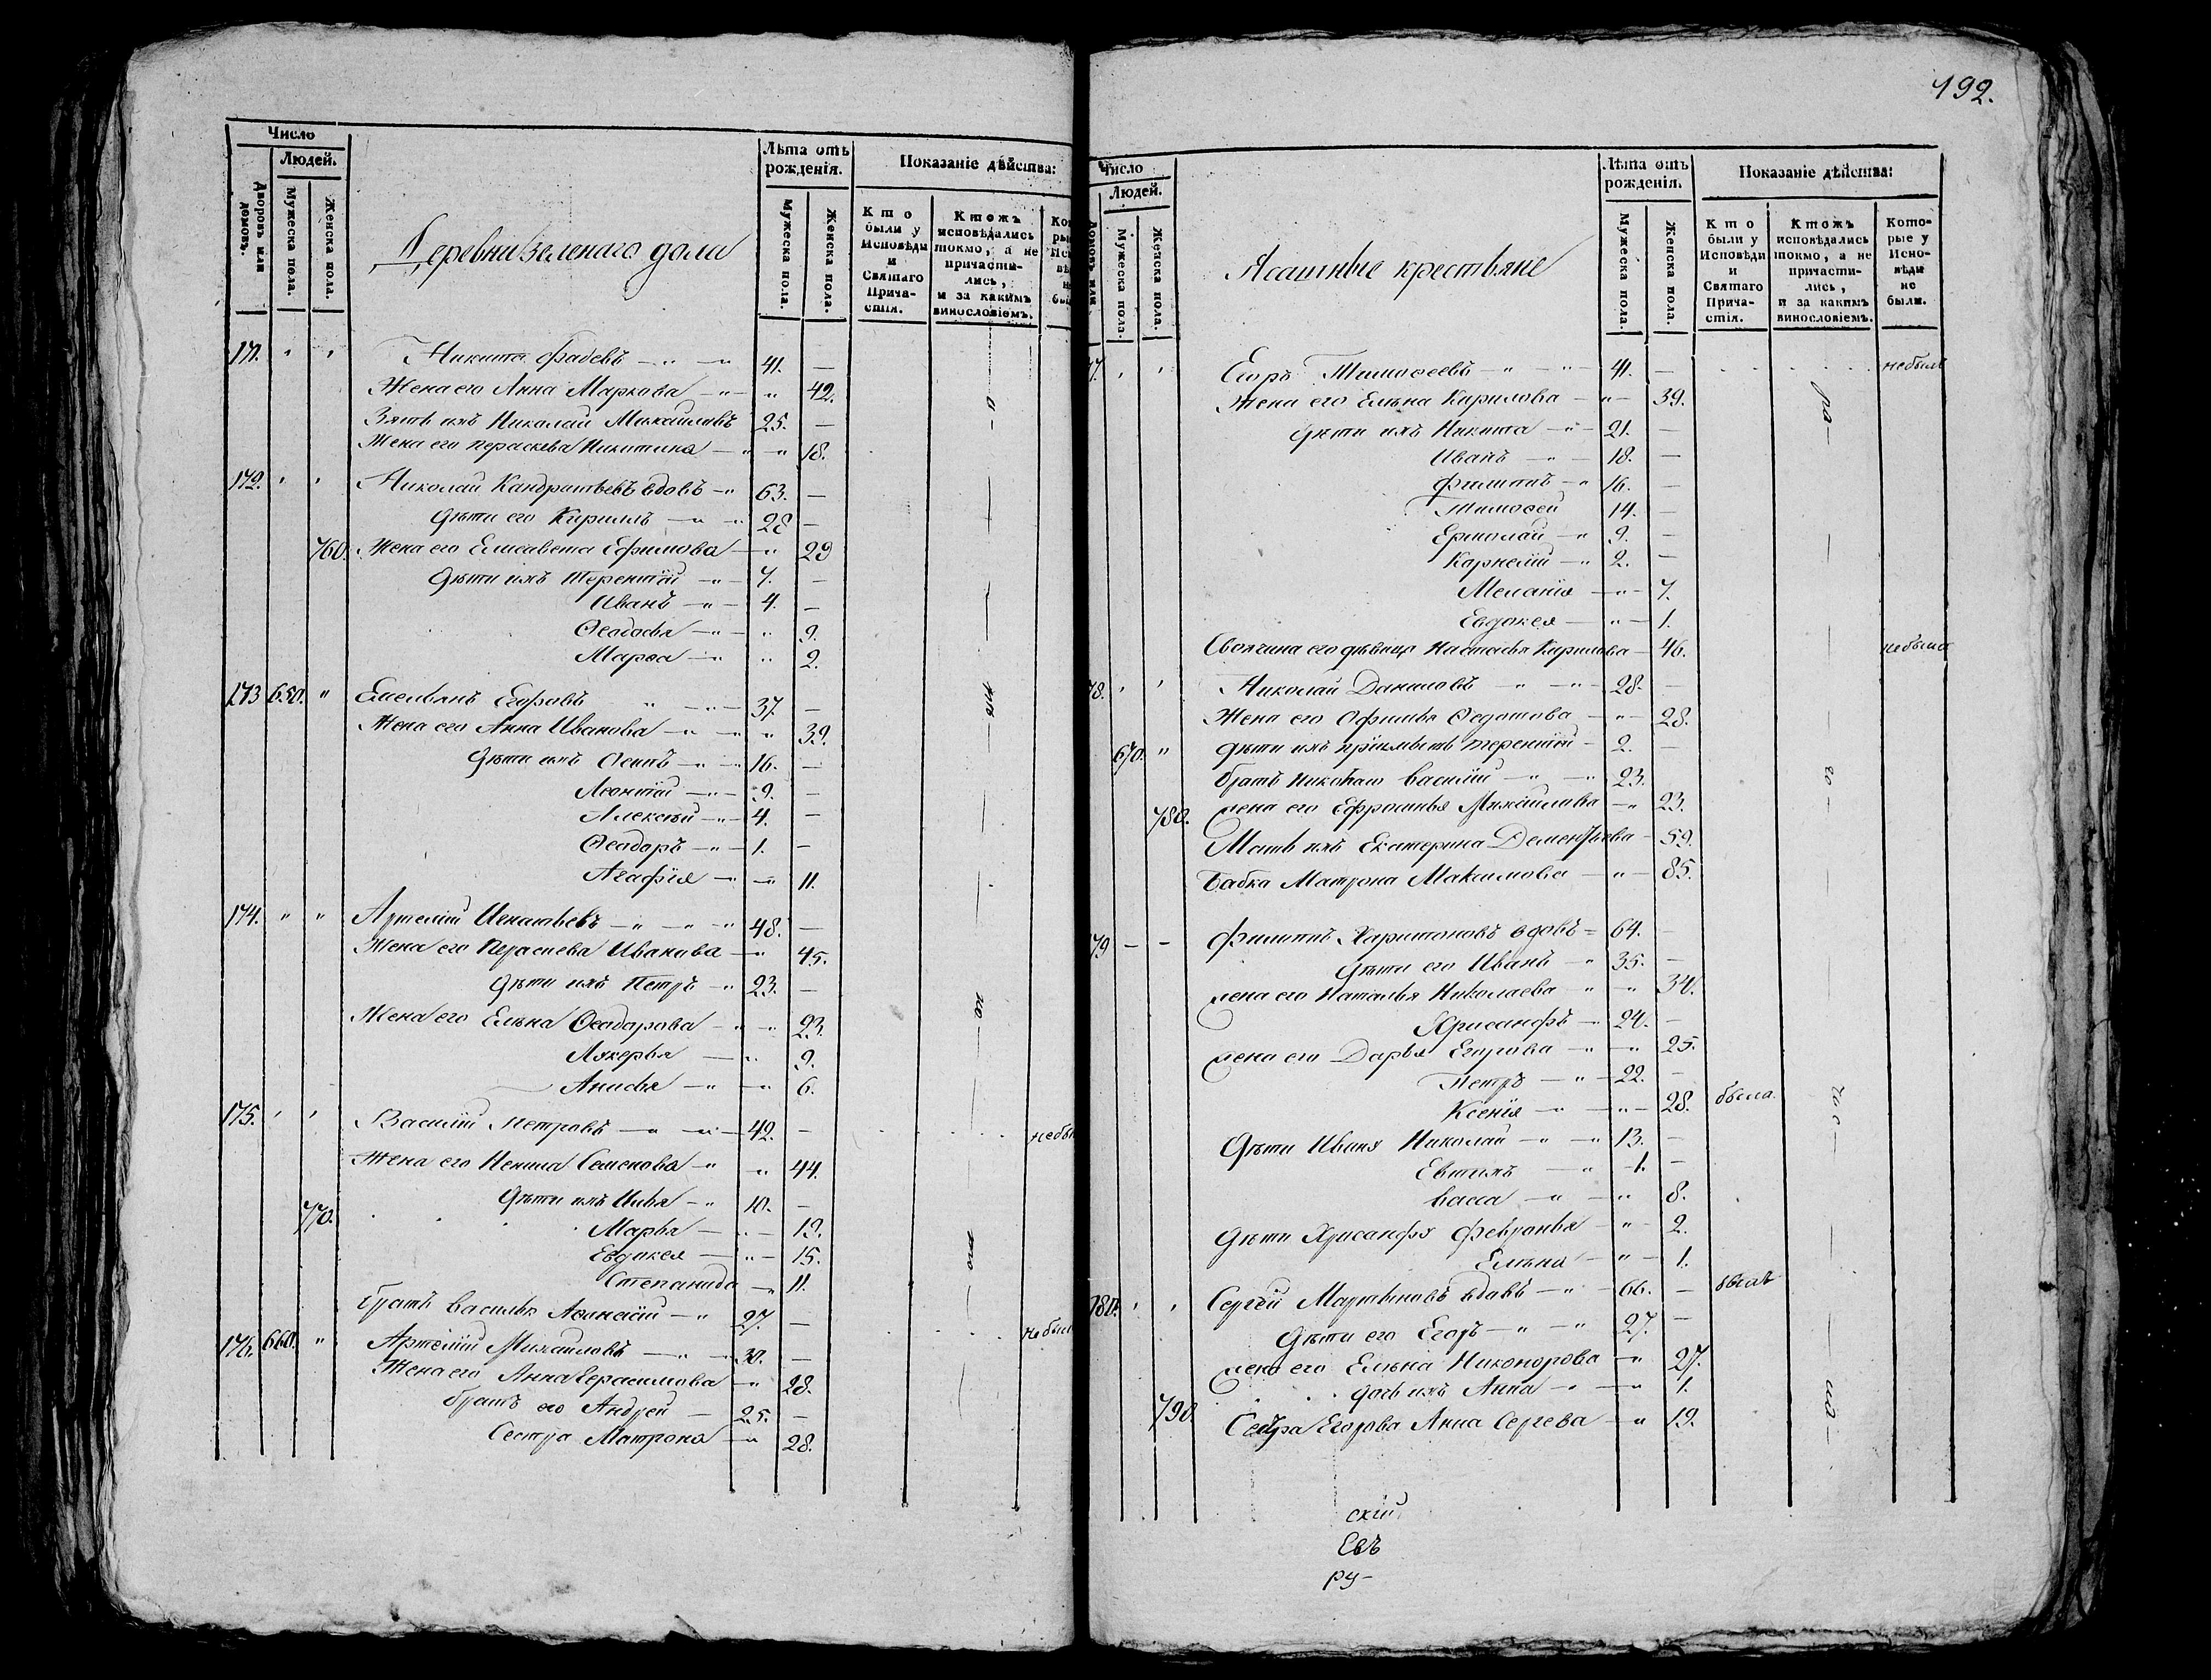 192.
Число
Людей.
Дворовъ или домовъ.
Мужеска пола.
Женска пола.
Деревни зеленаго дола
Лѣта отъ рожденія.
Мужеска пола.
Женска пола.
Показаніе дѣйства:
Кто были у Исповѣди и Святаго Причастія.
Ктожъ исповѣдались токмо, а не причастились, и за какимъ винословіемъ.
171. " " Никита Фадеевъ 41. —
Жена его Анна Маркова " 42.
Зять ихъ Николай Михайловъ 25. —
Жена его Пераскева Никитина " 18.
172. " " Николай Кандратьевъ вдовъ 63. —
Дѣти его Кириллъ 28 —
760. Жена его Елисавета Ефимова " 29
Дѣти ихъ Терентій 7. —
Иванъ 4. —
Ѳеодосья " 9.
Марѳа " 2.
173 650. " Емельянъ Егоровъ 37. —
Жена его Анна Иванова " 39.
Дѣти ихъ Осипъ 16. —
Леонтій 9. —
Алексѣй 4. —
Ѳеодоръ 1. —
Агафія " 11.
174. " " Артемій Игнатьевъ 48. —
Жена его Пераскева Иванова " 45.
Дѣти ихъ Петръ 23. —
Жена его Елѣна Ѳеодорова " 23.
Лукерья " 9.
Анисья " 6.
175. " " Василій Петровъ 42. — небы
Жена его Ненила Семенова " 44.
Дѣти ихъ Илья 10. —
770. Марья " 19.
Евдокея " 15.
Степанида " 11.
братъ Василья Аѳанасій 27. —
176. 660. " Артемій Михайловъ 30. — небыл
Жена его Анна Герасимова " 28.
братъ его Андрей 25. —
Сестра Матрона " 28.
Число
Людей.
Мужеска пола.
Женска пола.
Ясашные крестьяне
Лѣта отъ рожденія.
Мужеска пола.
Женска пола.
Показаніе дѣйства:
Кто были у Исповѣди и Святаго Причастія.
Ктожъ исповѣдались токмо, а не причастились, и за какимъ винословіемъ.
Которые у Исповѣди не были.
77. " " Егоръ Тимоѳеевъ 41. — небылъ
Жена его Елѣна Кирилова " 39.
Дѣти ихъ Никита 21. —
Иванъ 18. —
Филиппъ 16. —
Тимоѳей 14. —
Ермолай 9. —
Карнелій 2. —
Меланія " 7.
Евдокея " 1.
Своячина его дѣвица Настасья Кирилова 46. небыла
78. " " Николай Даниловъ 28. —
Жена его Офимья Ѳедотова " 28.
670. " Дѣти ихъ пріимышъ Терентій 2. —
братъ Николаю Василій 23.
780. жена его Ефросинья Михайлова " 23.
Мать ихъ Екатерина Дементьева 59.
Бабка Матрона Максимова " 85.
79 — — Филиппъ Харитоновъ вдовъ 64. —
Дѣти его Иванъ 35. —
жена его Наталья Николаева " 34.
Хрисанфъ 24. —
жена его Дарья Егорова " 25.
Петръ 22. —
Ксенія " 28. была
Дѣти Ивана Николай 13. —
Евтихъ 1. —
Васса " 8.
Дѣти Хрисанфа Февронья " 2.
Елѣна " 1.
180. " " Сергей Мартыновъ вдовъ 66. — былъ
Дѣти его Егоръ 27. —
жена его Елѣна Никонорова " 27.
дочь ихъ Анна " 1.
790. Сестра Егорова Анна Сергева " 19.
скій
Евъ
ру-